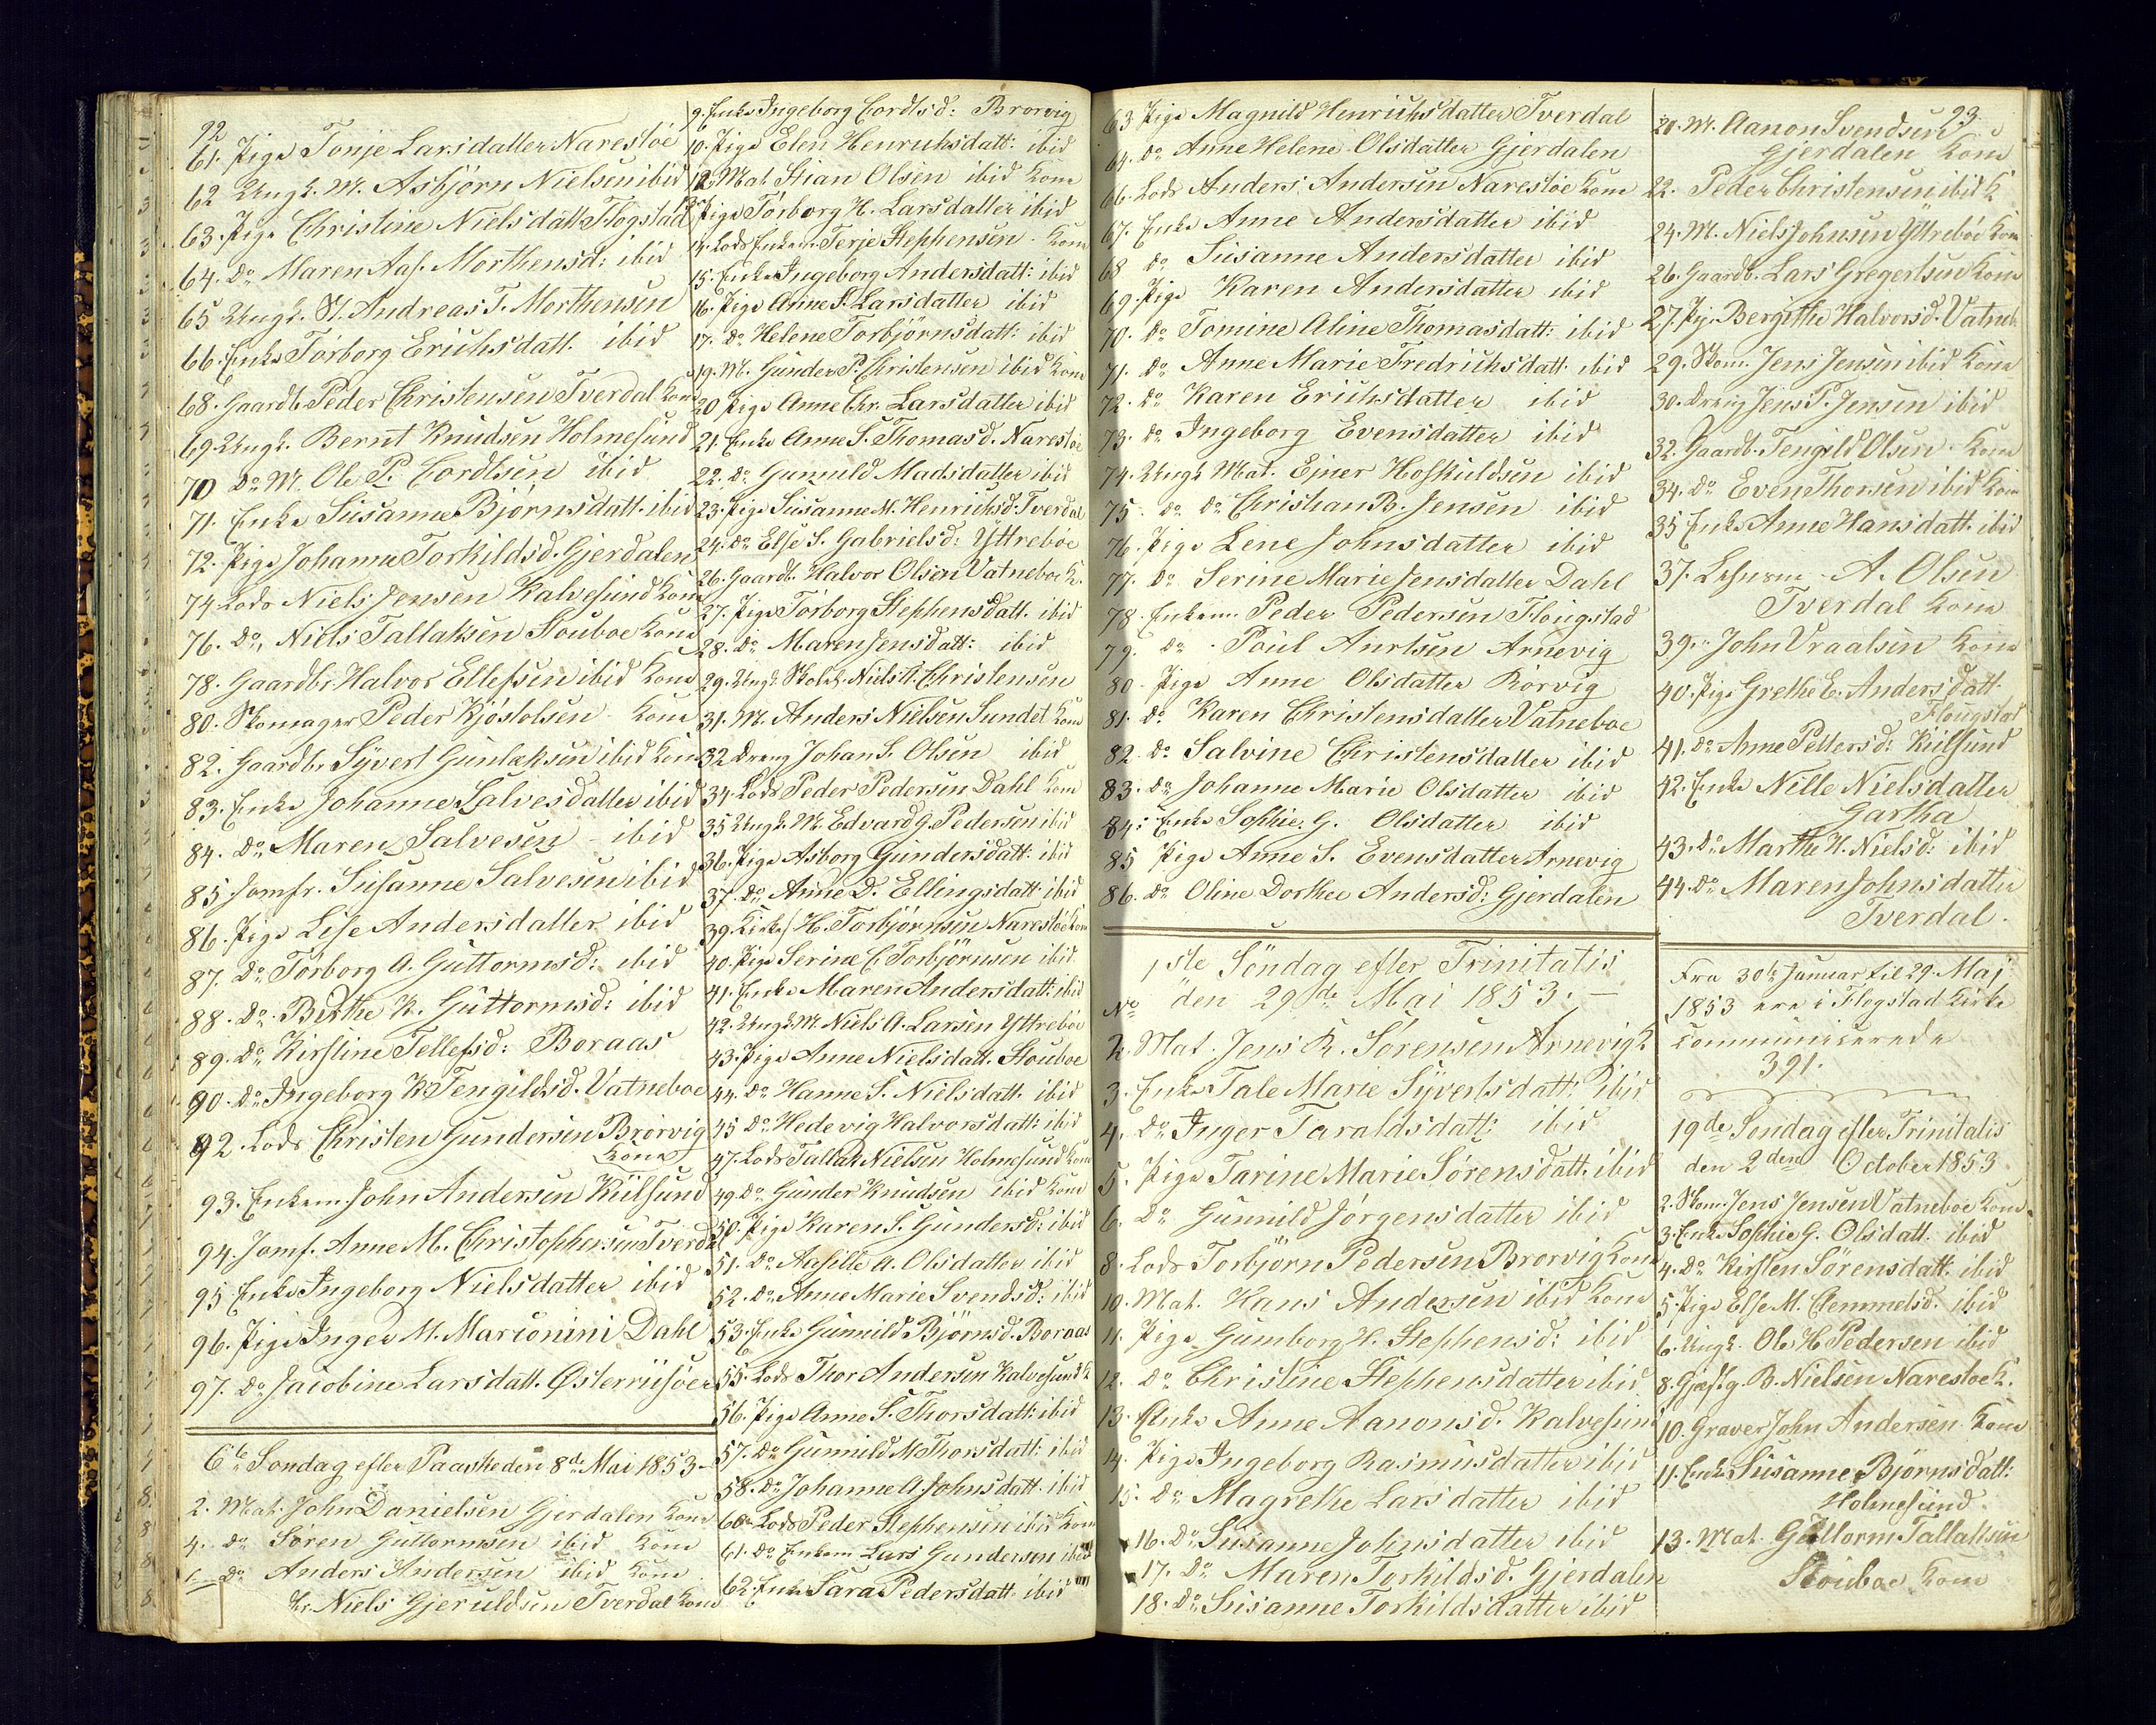 92
61. Pige Tonje Larsdatter Narestöe
62 Ungk. M. Asbjörn Nielsen ibid
63. Pige Christine Nielsdatt Flogstad
64. Do Maren Aas. Morthensd: ibid
65 Ungk. St. Andreas T. Morthensen
66. Enke Torborg Erichsdatt. ibid
68. Gaardb. Peder Christensen Tverdal Kone
69. Ungk. Bernt Knudsen Holmesund
70 Do M. Ole P. Cordtsen ibid
71. Enke Susanne Bjørnsdatt. ibid
72. Pige Johanne Torkildsd. Gjerdalen
74. Lods Niels Jensen Kalvesund Kone
76. Do, Niels Tallaksen Stouboe Kone
78. Gaardbr. Halvor Ellefsen ibid Kone
80. Skomager Peder Kjöstolsen - Kone
82. Gaardbr Syvert Gunlaksen ibid Kone
83. Enke Johanne Salvesdatter ibid
84. Do Maren Salvesen - ibid
85 Jomfr. Susanne Salvesen ibid
86. Pige Lise Andersdatter ibid
87. Do Torborg A. Guttormsd: ibid
88. Do Birthe K. Guttormsd: ibid
89. Do Kirstine Tellefsd: Boraas
90. Do Ingeborg K. Tengildsd. Vatneboe
92. Lods Christen Gundersen Brörvig
Kone
93. Enkem. John Andersen Kiilsund
94. Jomf. Anne M. Christophersen Tverdal
95 Enke Ingeborg Nielsdatter ibid
96. Pige Inger M. Marconini Dahl
97. Do Jacobine Larsdatt. Østerriisöer
6te Søndag efter Paaske den 8de Mai 1853 -
2. Mat. John Danielsen Gjerdalen Kone
4. Do Søren Guttormsen ibid Kone
6 Do Anders Andersen ibid Kone
Niels Gjeruldsen Tverdal Kone
9. Enke Ingeborg Cordtsd: Brorvig
10. Pige Elen Henrichsdatt: ibid
12 Mat Stian Olsen ibid Kone
13. Pige Torborg H. Larsdatter ibid
14. Lods Enkem. Terje Stephensen - Kone
15. Enke Ingeborg Andersdatt: ibid
16. Pige Anne S. Larsdatter ibid
17. Do Helene Torbjørnsdatt: ibid
19. M. Gunder P. Christensen ibid Kone
20 Pige Anne Chr. Larsdatter ibid
21. Enke Anne S. Thomasd. Narestöe
22. Do Gunnild Madsdatter ibid
23. Pige Susanne M. Henrichsd. Tverdal
24. Do Else S. Gabrielsd: Yttreboe
26. Gaardb. Halvor Olsen Vatneboe K.
27. Pige Torborg Stephensdatt. ibid
28. Do Maren Jensdatt: ibid
29. Ungk. Skolel. Niels A. Christensen
31. M. Anders Nielsen Sundet Kone
32 Dreng Johan S. Olsen ibid
34. Lods Peder Pedersen Dahl Kone
35 Ungk. M. Edvard G. Pedersen ibid
36. Pige Asborg Gundersdatt: ibid
37. Do Anne D. Ellingsdatt: ibid
39. Kirkes. H. Torbjörnsen Narestöe Kone
40. Pige Serine C. Torbjörnsen ibid
41. Enke Maren Andersdatt: ibid
42. Ungk. M. Niels A. Larsen Yttreboe
43. Pige Anne Nielsdatt. Stouboe
44. Do Hanne S. Nielsdatt. ibid
45 Do Hedevig Halvorsdatt: ibid
47. Lods Tallak Nielsen Holmesund Kone
49. Do Gunder Knudsen ibid Kone
50. Pige Karen S. Gundersd: ibid
51. Do Aasille A. Olsdatter ibid
52. Do Anne Marie Svendsd: ibid
53. Enke Gunnild Björnsd. Boraas
55. Lods Thor Andersen Kalvesund K
56. Pige Anne S. Thorsdatt: ibid
57. Do Gunnild M. Thorsdatt: ibid
58. Do Johanne A. Johnsdatt. ibid
60. Lods Peder Stephensen ibid Kone
61. Do Enkem Lars Gundersen ibid
62. Enke Sara Pedersdatt. ibid
63 Pige Magnild Henrichsdatter Tverdal
64. Do Anne Helene Olsdatter Gjerdalen
66. Lods Anders Andersen Narestöe Kone
67. Enke Anne Andersdatter ibid
68 Do Susanne Andersdatter ibid
69. Pige Karen Andersdatter ibid
70. Do Tomine Aline Thomasdatt: ibid
71. Do Anne Marie Fredrichsdatt. ibid
72. Do Karen Erichsdatter ibid
73. Do Ingeborg Evensdatter ibid
74. Ungk Mat. Ejner Hofskuldsen ibid
75. Do Do Christian B. Jensen ibid
76. Pige Lene Johnsdatter ibid
77. Do Serine Marie Jensdatter Dahl
78. Enkem. Peder Pedersen Flougstad
79. Do Poul Anrtsen Arnevig
80. Pige Anne Olsdatter Rörvig
81. Do Karen Christensdatter Vatneboe
82. Do Salvine Christensdatter ibid
83. Do Johanne Marie Olsdatter ibid
84: Enke Sophie G. Olsdatter ibid
85 Pige Anne S. Evensdatter Arnevig
86. Do Oline Dorthee Andersd: Gjerdalen
1ste Söndag efter Trinitatis
No den 29de Mai 1853. -
2. Mat. Jens R. Sörensen Arnevig K
3. Enke Tale Marie Syvertsdatt: ibid
4. Do Inger Taraldsdatt: ibid
5. Pige Tarine Marie Sörensdatt. ibid
6. Do Gunnild Jörgensdatter ibid
8. Lods Torbjörn Pedersen Brorvig Kone
10. Mat. Hans Andersen ibid Kone
11. Pige Gumborg H. Stephensd: ibid
12. Do Christine Stephensdatter ibid
13. Enke Anne Aanonsd. Kalvesund
14. Pige Ingeborg Rasmusdatter ibid
15. Do Magrethe Larsdatter ibid
16. Do Susanne Johnsdatter ibid
17. Do Maren Torkildsd. Gjerdalen
18. Do Susanne Torkildsdatter ibid
93
20. M. Aanon Svendsen
Gjerdalen Kone
22. Peder Christensen ibid K
24. M. Niels Johnsen Yttreböe Kone
26. Gaardb. Lars Gregertsen Kone
27. Pig. Bergithe Halvorsd. Vatneb.
29. Skom. Jens Jensen ibid Kone
30. Dreng Jens P. Jensen ibid
32. Gaardb. Tengild Olsen - Kone
34. Do Even Thorsen ibid Kone
35 Enke Anne Hansdatt. ibid
37. A. Olsen
Tverdal Kone
39. John Vraalsen Kone
40. Pige Grethe E. Andersdatt.
Flougstad
41. Do Anne Pettersd: Kiilsund
42. Enke Nille Nielsdatter
Gartha
43. Do Marthe H. Nielsd: ibid
44. Do Maren Johnsdatter
Tverdal.
Fra 30te Januar til 29. Maj
1853 ere i Flogstad Kirke
communicerede
391.
19de Søndag efter Trinitatis
den 2den October 1853
2. Skom. Jens Jensen Vatneboe Kone
3. Enke Sophie G. Olsdatt. ibid
4. Do Kirsten Sörensdatt. ibid
5. Pige Else M. Clemmetsd. ibid
6. Ungk. Ole H. Pedersen ibid
8. Gjæstg. B. Nielsen Narestöe K.
10. Graver John Andersen Kone
11. Enke Susanne Bjørnsdatt:
Holmesund
13. Mat. Guttorm Tallaksen
Stouboe Kone